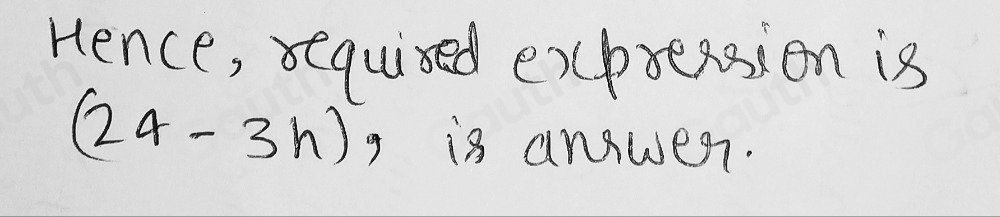 Hence, required expression is
(24 - 3h), is answer.